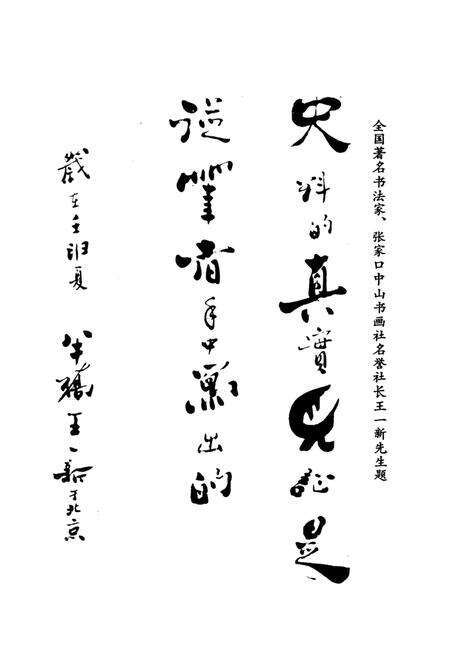 全国著名书法家、张家口中山书画社名誉社长王一新先生题
史料的真實见證是
從業者手中寫出的
歲在壬申夏
半磚王一新于北京